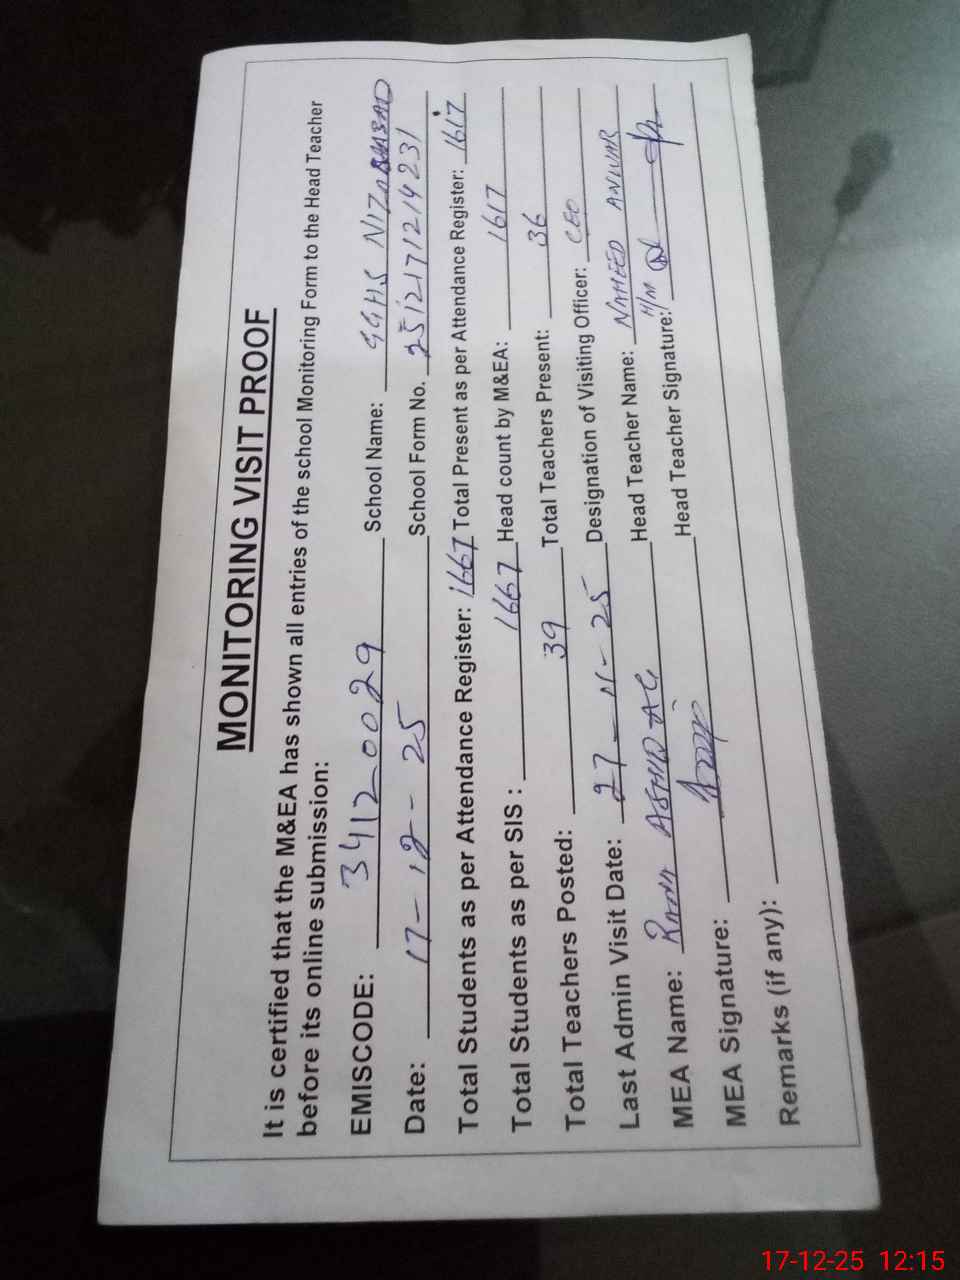 MONITORING VISIT PROOF
It is certified that the M&EA has shown all entries of the school Monitoring Form to the Head Teacher
before its online submission:
EMISCODE: 34120029 School Name: GGHS NIZAMABAD
Date: 17-12-25 School Form No. 2512171214231
Total Students as per Attendance Register: 1667 Total Present as per Attendance Register: 1617
Total Students as per SIS : 1667 Head count by M&EA: 1617
Total Teachers Posted: 39 Total Teachers Present: 36
Last Admin Visit Date: 27-11-25 Designation of Visiting Officer: CEO
MEA Name: RANA Head Teacher Name: NAHEED ANWAR
MEA Signature: Head Teacher Signature: H/M
Remarks (if any):
17-12-25 12:15